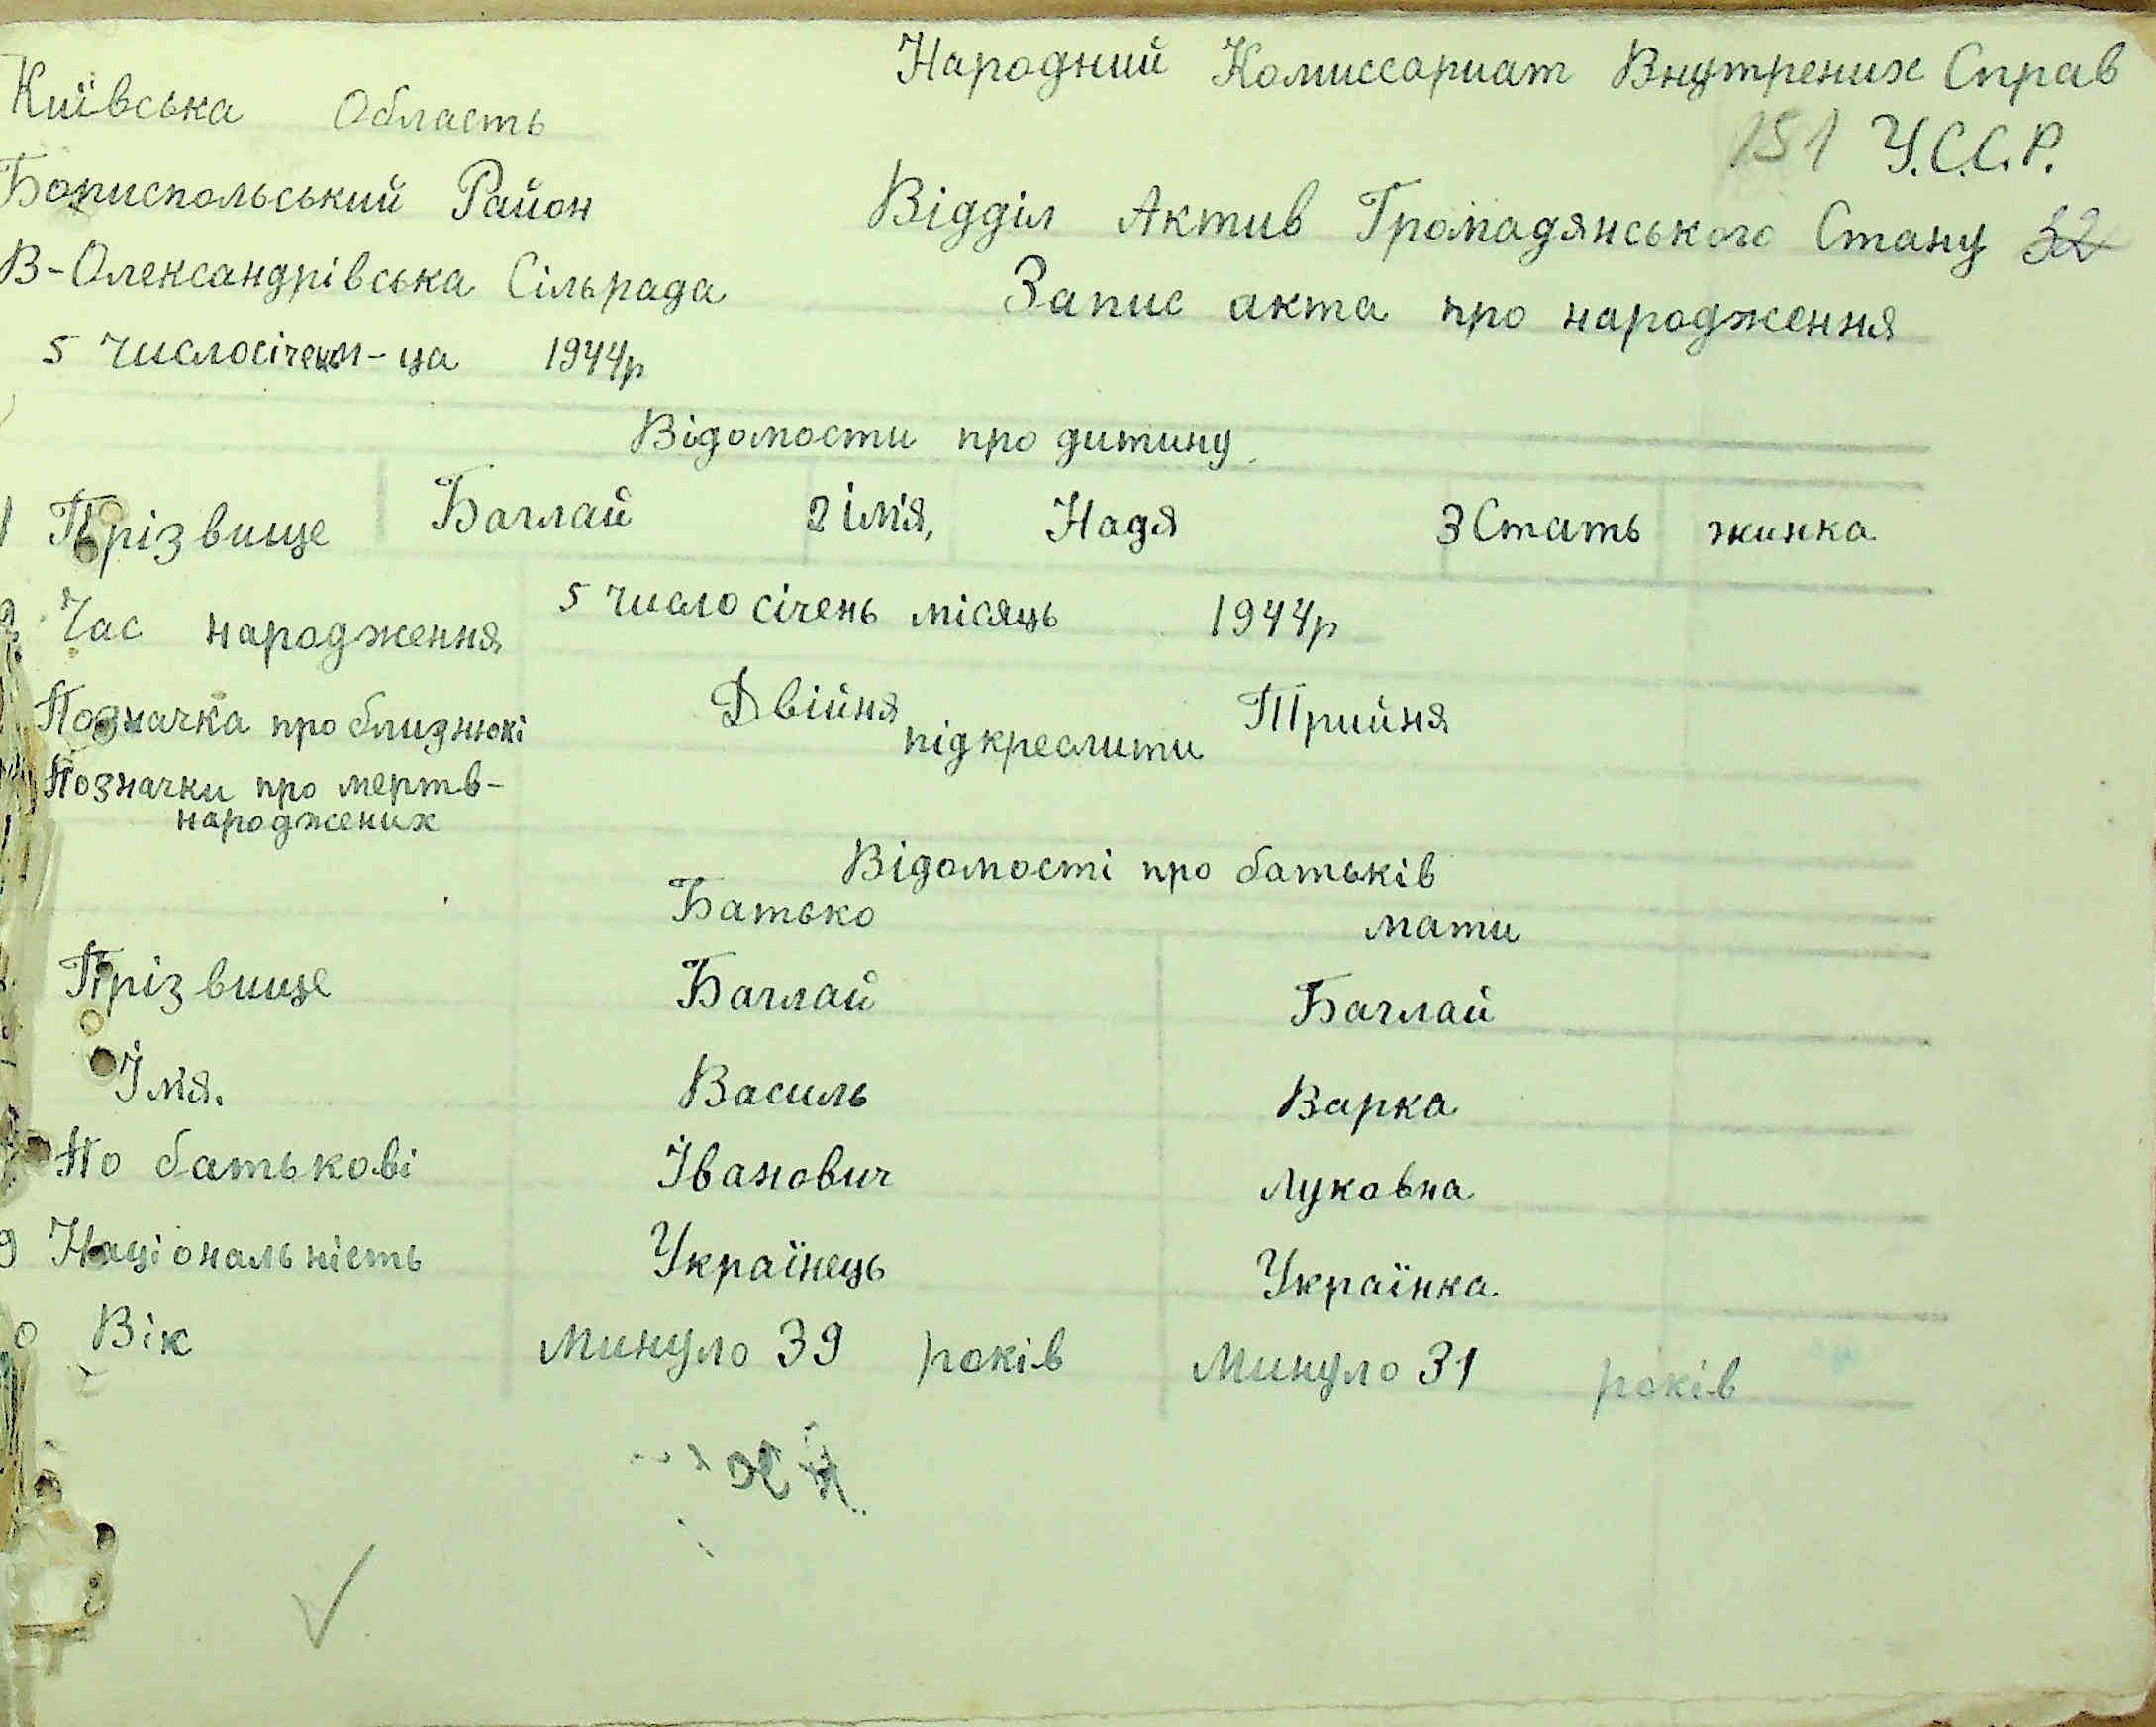 Народний Комиссариат Внутрених Справ
Київська Область
151 У.С.С.Р.
Бориспольський Район
Відділ Актив Громадянського Стану 32
В-Олександрівська Сільрада
Запис акта про народження
5 число січень м-ца 1944р
Відомости про дитину
1 Прізвище Баглай 2 імя, Надя 3 Стать жинка
Час народження 5 число січень місяць 1944р
Позначка про близнюкі Двійня підкреслити Трийня
Позначки про мертв-
народжених
Відомості про батьків
Батько мати
Прізвище Баглай Баглай
Імя. Василь Варка
По батькові Іванович Луковна
9 Національність Українець Українка.
0 Вік Минуло 39 років Минуло 31 років